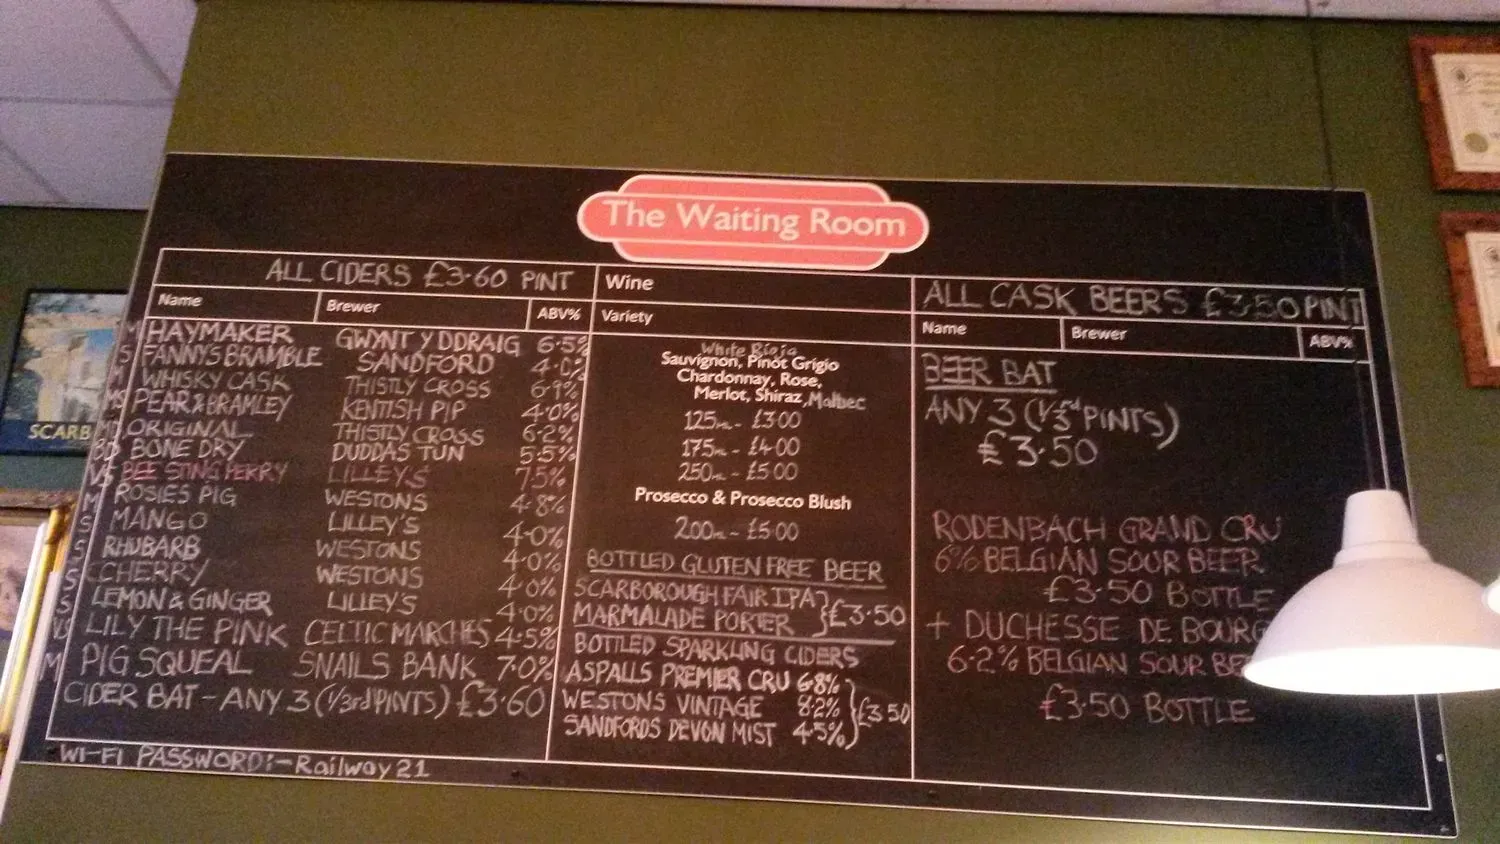 The Waiting Room
ALL CIDERS £3·60 PINT
Name Brewer ABV%
M HAYMAKER GWYNT Y DDRAIG 6·5%
S FANNYS BRAMBLE SANDFORD 4·0%
M WHISKY CASK THISTLY CROSS 6·9%
MS PEAR & BRAMLEY KENTISH PIP 4·0%
ORIGINAL THISTLY CROSS 6·2%
BONE DRY DUDDAS TUN 5·5%
VS BEE STING PERRY LILLEY'S 7·5%
M ROSIES PIG WESTONS 4·8%
S MANGO LILLEY'S 4·0%
S RHUBARB WESTONS 4·0%
S CHERRY WESTONS 4·0%
S LEMON & GINGER LILLEY'S 4·0%
LILY THE PINK CELTIC MARCHES 4·5%
M PIG SQUEAL SNAILS BANK 7·0%
CIDER BAT - ANY 3 (1/3rd PINTS) £3·60
WI-FI PASSWORD:- Railway 21
Wine
Variety
White Rioja
Sauvignon, Pinot Grigio
Chardonnay, Rose,
Merlot, Shiraz, Malbec
125mL - £3·00
175mL - £4·00
250mL - £5·00
Prosecco & Prosecco Blush
200mL - £5·00
BOTTLED GLUTEN FREE BEER
SCARBOROUGH FAIR IPA
MARMALADE PORTER £3·50
BOTTLED SPARKLING CIDERS
ASPALLS PREMIER CRU 6·8%
WESTONS VINTAGE 8·2% £3·50
SANDFORDS DEVON MIST 4·5%
ALL CASK BEERS £3·50 PINT
Name Brewer ABV%
BEER BAT
ANY 3 (1/3rd PINTS)
£3·50
RODENBACH GRAND CRU
6% BELGIAN SOUR BEER
£3·50 BOTTLE
+ DUCHESSE DE BOURG
6·2% BELGIAN SOUR BE
£3·50 BOTTLE
SCARB